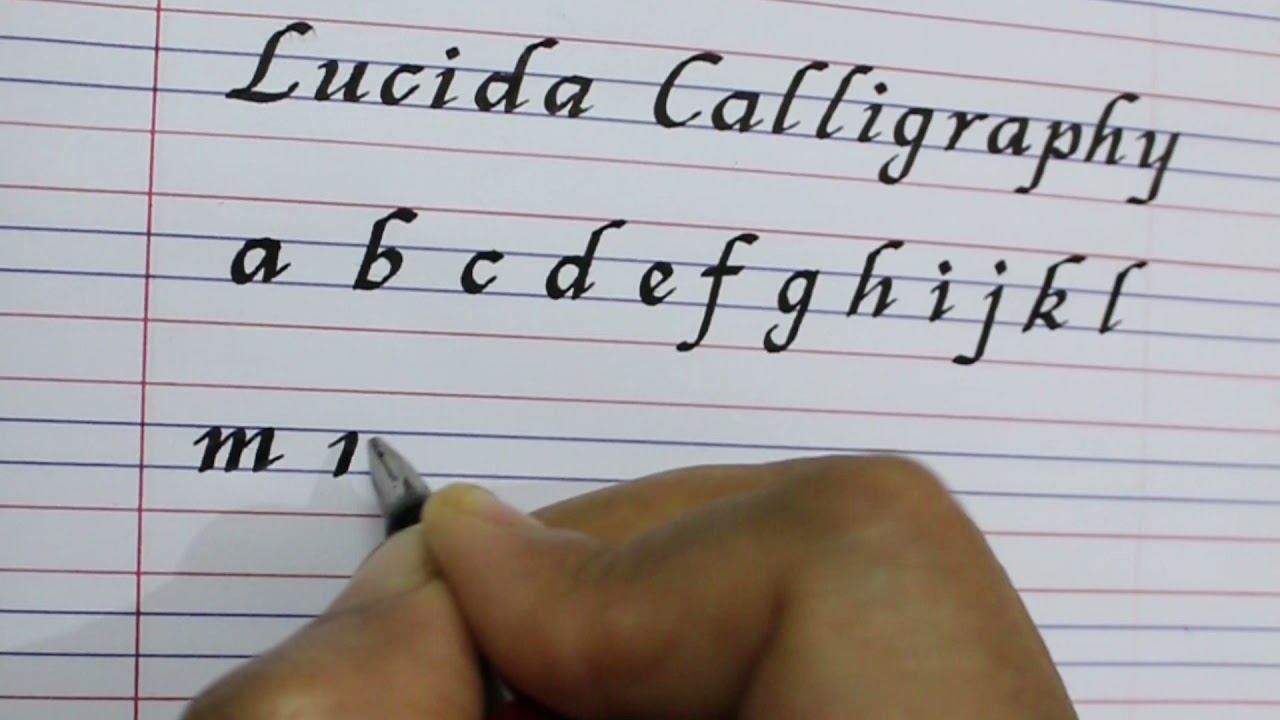 Lucida Calligraphy
a b c d e f g h i j k l
m